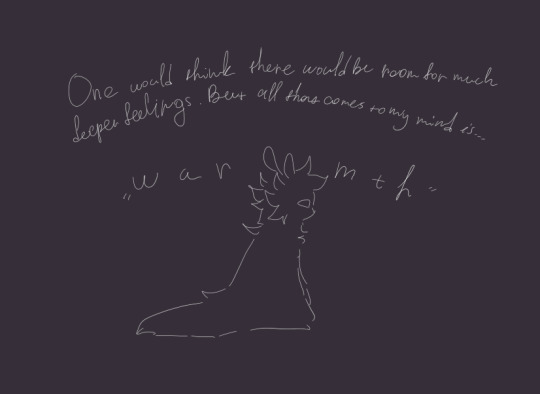 One would think there would be room for much
deeper feelings. But all that comes to my mind is...
„warmth"